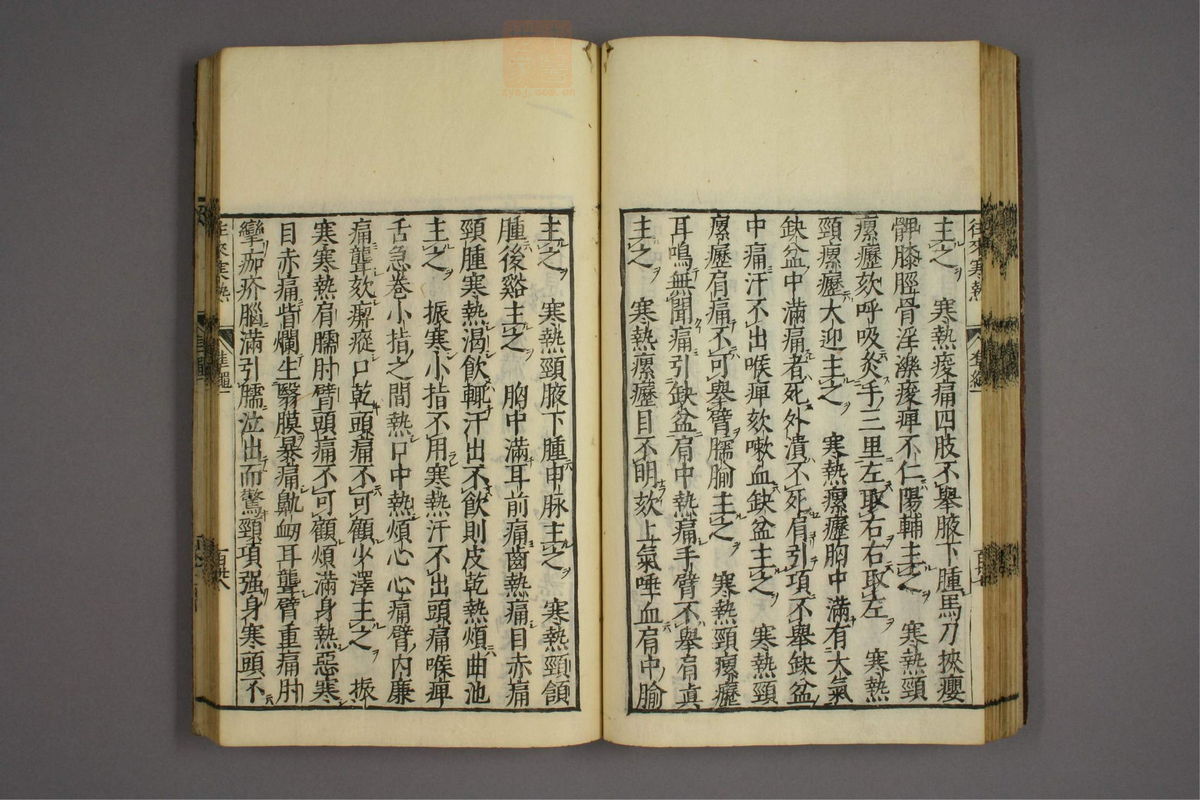 主之 寒熱痠痛四肢不舉腋下腫馬刀挾癭
髀膝脛骨淫濼痠痺不仁陽輔主之 寒熱頸
瘰癧欬呼吸灸手三里左取右右取左 寒熱
頸瘰癧大迎主之 寒熱瘰癧胸中滿有大氣
缺盆中滿痛者死外潰不死肩引項不舉缺盆
中痛汗不出喉痺欬嗽血缺盆主之 寒熱頸
瘰癧肩痛不可舉臂臑腧主之 寒熱頸瘰癧
耳鳴無聞痛引缺盆肩中熱痛手臂不舉肩貞
主之 寒熱瘰癧目不明欬上氣唾血肩中腧
主之 寒熱頸腋下腫申脉主之 寒熱頸頷
腫後谿主之 胸中滿耳前痛齒熱痛目赤痛
頸腫寒熱渴飲輒汗出不飲則皮乾熱煩曲池
主之 振寒小指不用寒熱汗不出頭痛喉痺
舌急卷小指之間熱口中熱煩心心痛臂內廉
痛聾欬痺瘲口乾頭痛不可顧少澤主之 振
寒寒熱肩臑肘臂頭痛不可顧煩滿身熱惡寒
目赤痛眥爛生翳膜暴痛鼽衄耳聾臂重痛肘
攣痂疥腦滿引臑泣出而驚頸項强身寒頭不
往來寒熱